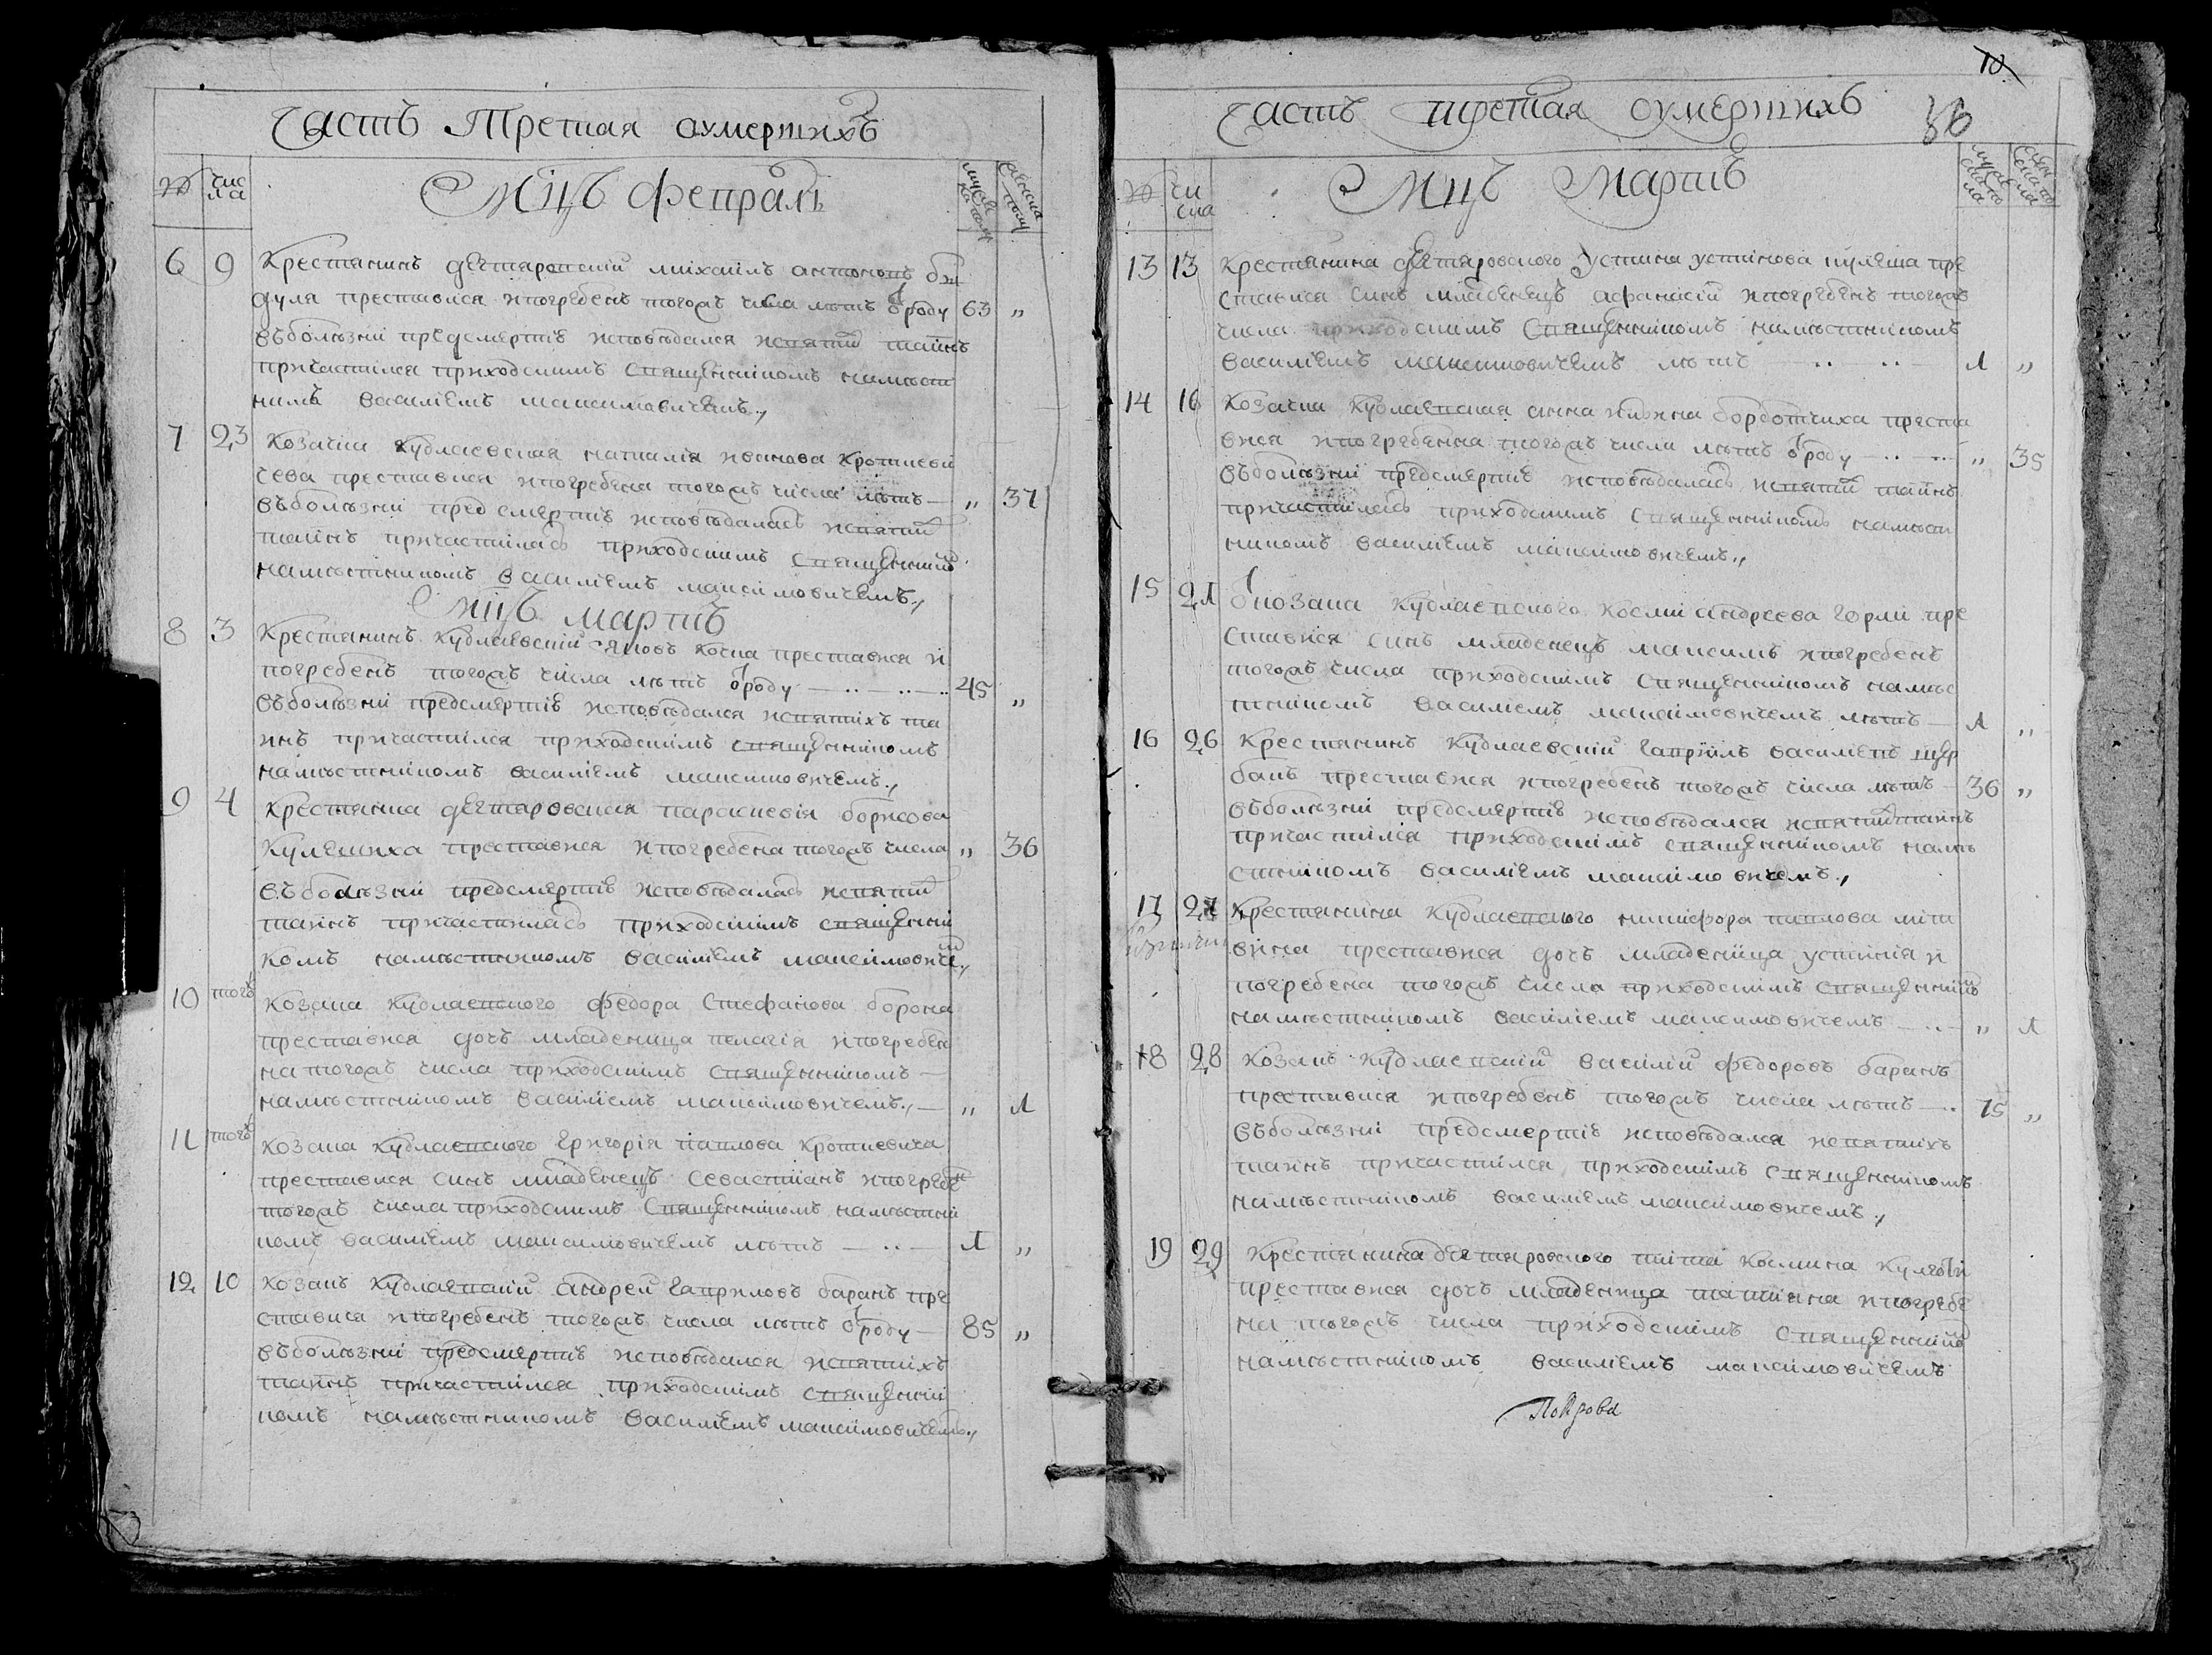 Часть Третая оумершихъ
№ числа Мцъ Февраль мужеска полу женска полу
6 9 Крестянинъ дегтяровский михаилъ антоновъ
дуля преставися и погребенъ тогожъ числа лѣтъ ѿроду 63 „
въболѣзни предсмертіе исповѣдался исвятій таинъ
причастился приходскимъ Священникомъ намѣст
никомъ василіемъ максимовичемъ.,
7 23 Козачка Кублаевская наталія иванова Кроткеви
чева преставися и погребена тогожъ числа лѣтъ — „ 37
въболѣзни предсмертіе исповѣдалась исвятій
таинъ причастилась приходскимъ Священником
намѣстникомъ василіемъ максимовичемъ.,
Мцъ мартъ
8 3 Крестянинъ Кублаевскій яковъ коена преставися и
погребенъ тогожъ числа лѣтъ ѿроду — 45 „
въболѣзни предсмертіе исповѣдался исвятіхъ та
инъ причастился приходскимъ священникомъ
намѣстникомъ василіемъ максимовичемъ.,
9 4 Крестянка дегтяровская параскевія борисова
Кулешиха преставися и погребена тогожъ числа „ 36
въболѣзни предсмертіе исповѣдалась исвятій
таинъ причастилась приходскимъ священни
комъ намѣстникомъ василіемъ максимовиче.,
10 тогъ Козака Кублаевского федора Стефанова борона
преставися дочь младеница пелагія и погребен
на тогожъ числа приходскимъ священникомъ —
намѣстникомъ василіемъ максимовичемъ., — „ 1
11 тогъ Козака Кублаевского Григорія павлова Кроткевича
преставися Синъ младенецъ Севастіанъ и погребен
тогожъ числа приходскимъ Священникомъ намѣстни
комъ василіемъ максимовичемъ лѣтъ — 1 „
12 10 Козакъ Кублаевскій андрей Гавриловъ баранъ пре
ставися и погребенъ тогожъ числа лѣтъ ѿроду — 85 „
въболѣзни предсмертіе исповѣдался исвятіхъ
таинъ причастился приходскимъ священни
комъ намѣстникомъ василіемъ максимовичемъ.,
10
Часть третая оумершихъ
36
№ числа Мцъ Мартъ
13 13 Крестянина дегтяровского Устина устінова кулеша пре
ставися синъ младенецъ афанасій и погребенъ тогожъ
числа приходскимъ Священникомъ намѣстникомъ
василіемъ максимовичемъ лѣтъ — 1 „
14 16 Козачка Кублаевская анна борботчиха преста
вися и погребенна тогожъ числа лѣтъ ѿроду — „ 35
въболѣзни предсмертіе исповѣдалась исвятій таинъ
причастилась приходскимъ Священникомъ намѣст
никомъ василіемъ максимовичемъ.,
15 21 козака Кублаевского Косми андреева Горли пре
ставися синъ младенецъ максимъ и погребенъ
тогожъ числа приходскимъ Священникомъ намѣс
тникомъ василіемъ максимовичемъ лѣтъ — 1 „
16 26 Крестянинъ Кублаевскій Гавріилъ василіевъ щер
бакъ преставися и погребенъ тогожъ числа лѣтъ — 36 „
въболѣзни предсмертіе исповѣдался исвятій таинъ
причастился приходскимъ священникомъ намѣ
стникомъ василіемъ максимовичемъ.,
17 27 Крестянина Кублаевского никифора павлова
вина преставися дочь младеница устинія и
погребена тогожъ числа приходскимъ священником
намѣстникомъ василіемъ максимовичемъ — „ 1
18 28 Козакъ Кублаевскій василій федоровъ баранъ
преставися и погребенъ тогожъ числа лѣтъ — 75 „
въболѣзни предсмертіе исповѣдался исвятіхъ
таинъ причастился приходскимъ священникомъ
намѣстникомъ василіемъ максимовичемъ.,
19 29 Крестянина дегтяровского тита космина
преставися дочь младеница татіяна и погребе
на тогожъ числа приходскимъ Священником
намѣстникомъ василіемъ максимовичемъ